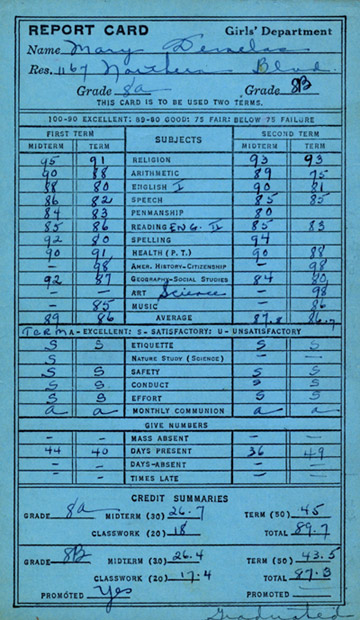 REPORT CARD Girls' Department
Name Mary
Res. 1167 Northern Blvd.
Grade 8a Grade 8B
THIS CARD IS TO BE USED TWO TERMS.
100-90 EXCELLENT: 89-80 GOOD: 75 FAIR: BELOW 75 FAILURE
FIRST TERM SUBJECTS SECOND TERM
MIDTERM TERM MIDTERM TERM
95 91 RELIGION 93 93
90 88 ARITHMETIC 89 75
88 80 ENGLISH I 90 81
86 82 SPEECH 85 85
84 83 PENMANSHIP 80
85 86 READING ENG. II 85 83
92 80 SPELLING 94
90 91 HEALTH (P. T.) 90 88
— 98 AMER. HISTORY-CITIZENSHIP — 98
92 87 GEOGRAPHY-SOCIAL STUDIES 84 80
— ART Science — 98
— 85 MUSIC — 86
89 86 AVERAGE 87.8 86.7
TERM A - EXCELLENT: S - SATISFACTORY: U - UNSATISFACTORY
S S ETIQUETTE S S
S NATURE STUDY (SCIENCE) — —
S S SAFETY S S
S S CONDUCT S S
S S EFFORT S S
a a MONTHLY COMMUNION a a
GIVE NUMBERS
— — MASS ABSENT — —
44 40 DAYS PRESENT 36 49
— — DAYS-ABSENT — —
— — TIMES LATE — —
CREDIT SUMMARIES
GRADE 8a MIDTERM (30) 26.7 TERM (50) 45
CLASSWORK (20) 18 TOTAL 89.7
GRADE 8B MIDTERM (30) 26.4 TERM (50) 43.5
CLASSWORK (20) 17.4 TOTAL 87.3
PROMOTED Yes PROMOTED
Graduated